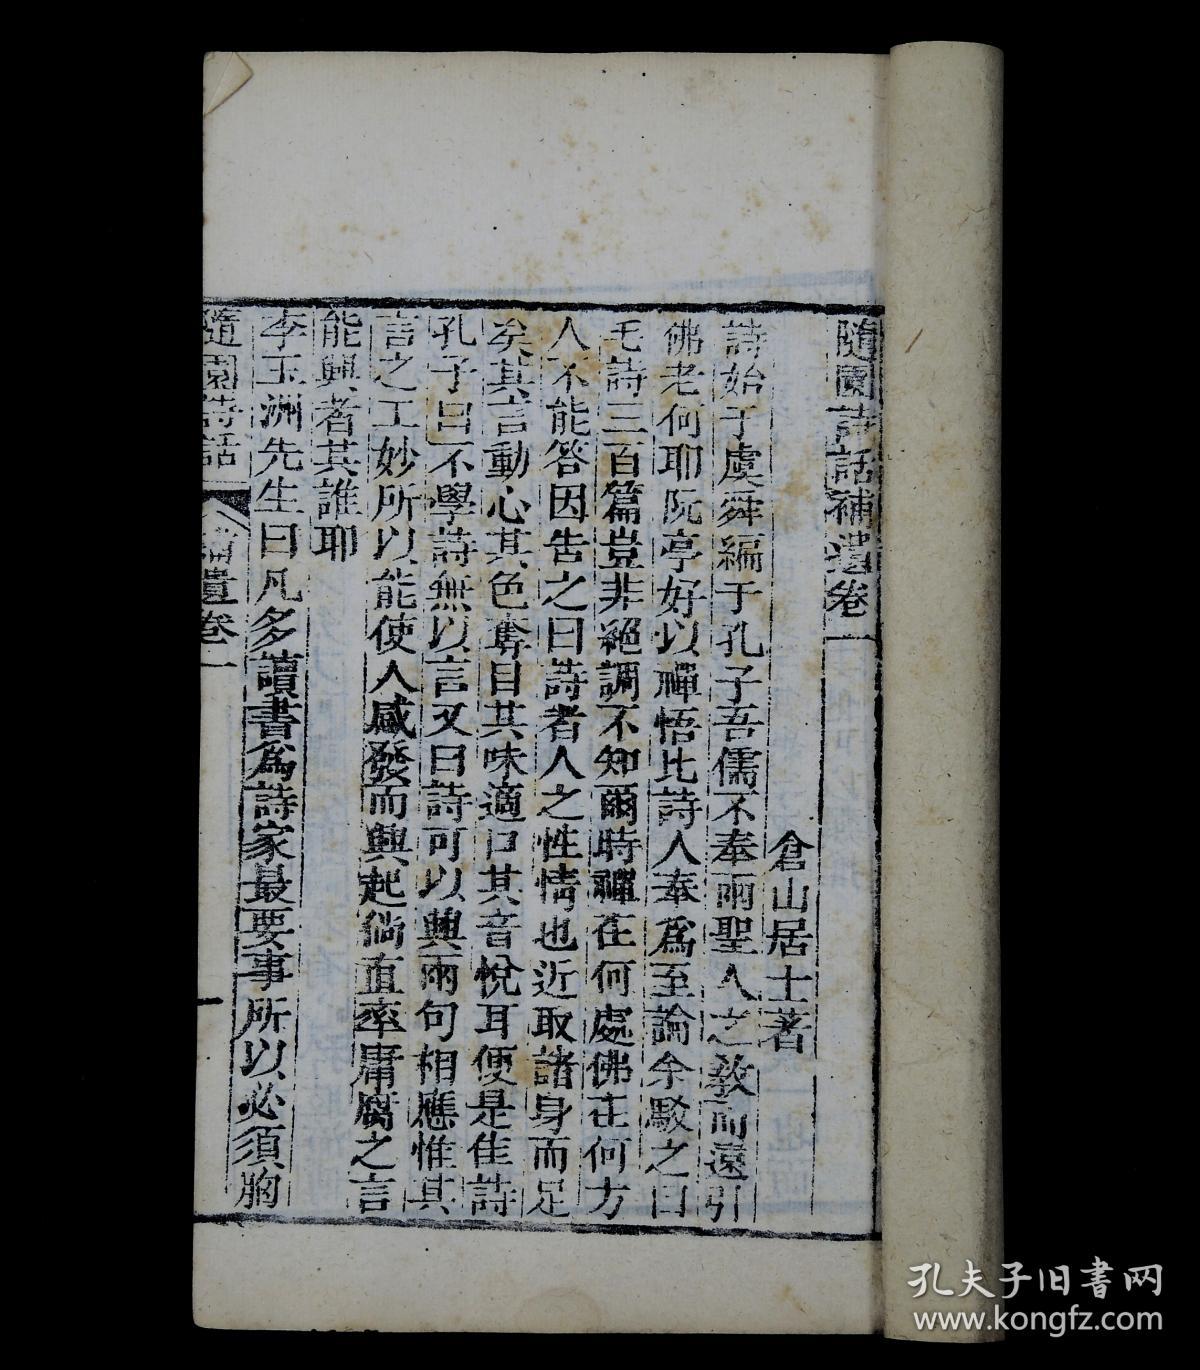 隨園詩話補遺卷一
倉山居士著
詩始于虞舜編于孔子吾儒不奉兩聖人之敎而遠引
佛老何耶阮亭好以禪悟比詩人奉爲至論余駁之曰
毛詩三百篇豈非絕調不知爾時禪在何處佛在何方
人不能答因告之曰詩者人之性情也近取諸身而足
矣其言動心其色奪目其味適口其音悅耳便是佳詩
孔子曰不學詩無以言又曰詩可以興兩句相應惟其
言之工妙所以能使人感發而興起倘直率庸腐之言
能興者其誰耶
李玉洲先生曰凡多讀書爲詩家最要事所以必須胸
隨園詩話 補遺卷一 一
孔夫子旧书网
www.kongfz.com